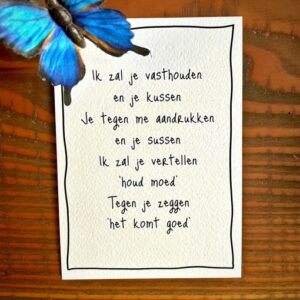 Ik zal je vasthouden
en je kussen
Je tegen me aandrukken
en je sussen
Ik zal je vertellen
'houd moed'
Tegen je zeggen
'het komt goed'